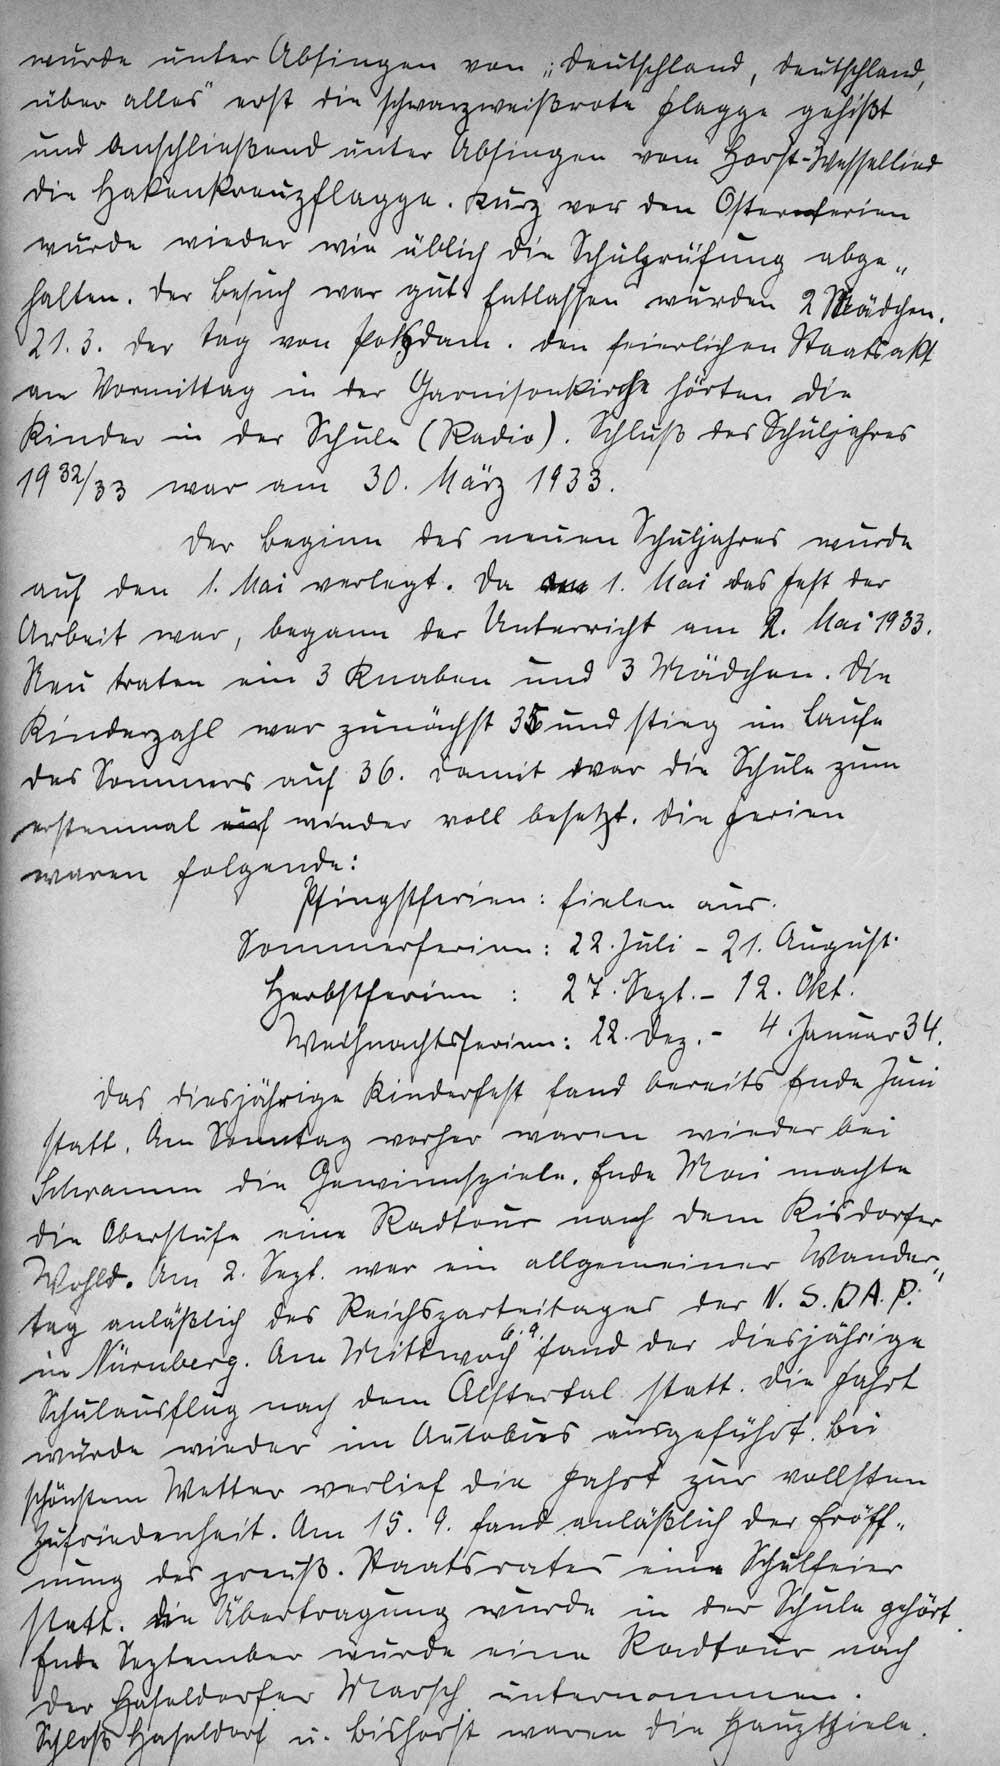 wurde unter Absingen von „Deutschland, Deutschland,
über alles" erst die schwarzweißrote Flagge gehißt
und anschließend unter Absingen vom Horst-Wessellied
die Hakenkreuzflagge. Kurz vor den Osterferien
wurde wieder wie üblich die Schulprüfung abge„
halten. Der Besuch war gut. Entlassen wurden 2 Mädchen.
21.3. der Tag von Potsdam. Den feierlichen Staatsakt
am Vormittag in der Garnisonkirche hörten die
Kinder in der Schule (Radio). Schluß des Schuljahres
1932/33 war am 30. März 1933.
Der Beginn des neuen Schuljahres wurde
auf den 1. Mai verlegt. Da 1. Mai das Fest der
Arbeit war, begann der Unterricht am 2. Mai 1933.
Neu traten ein 3 Knaben und 3 Mädchen. Die
Kinderzahl war zunächst 35 und stieg im Laufe
des Sommers auf 36. Damit war die Schule zum
erstenmal wieder voll besetzt. Die Ferien
waren folgende:
Pfingstferien: fielen aus.
Sommerferien: 22. Juli - 21. August.
Herbstferien : 27. Sept. - 12. Okt.
Weihnachtsferien: 22. Dez. - 4. Januar 34.
Das diesjährige Kinderfest fand bereits Ende Juni
statt. Am Sonntag vorher waren wieder bei
Schramm die Gewinnspiele. Ende Mai machte
die Oberstufe eine Radtour nach dem Kisdorfer
Wohld. Am 2. Sept. war ein allgemeiner Wander„
tag anläßlich des Reichsparteitages der N.S.D.A.P.
in Nürnberg. Am Mittwoch 6.9. fand der diesjährige
Schulausflug nach dem Alstertal statt. Die Fahrt
wurde wieder im Autobus ausgeführt. Bei
schönstem Wetter verlief die Fahrt zur vollsten
Zufriedenheit. Am 15. 9. fand anläßlich der Eröff„
nung des preuß. Staatsrates eine Schulfeier
statt. Die Übertragung wurde in der Schule gehört.
Ende September wurde eine Radtour nach
der Haseldorfer Marsch unternommen.
Schloß Haseldorf u. Bishorst waren die Hauptziele.